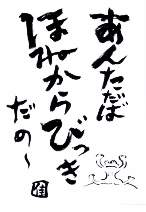 あんただば
ほねからびっき
だの〜